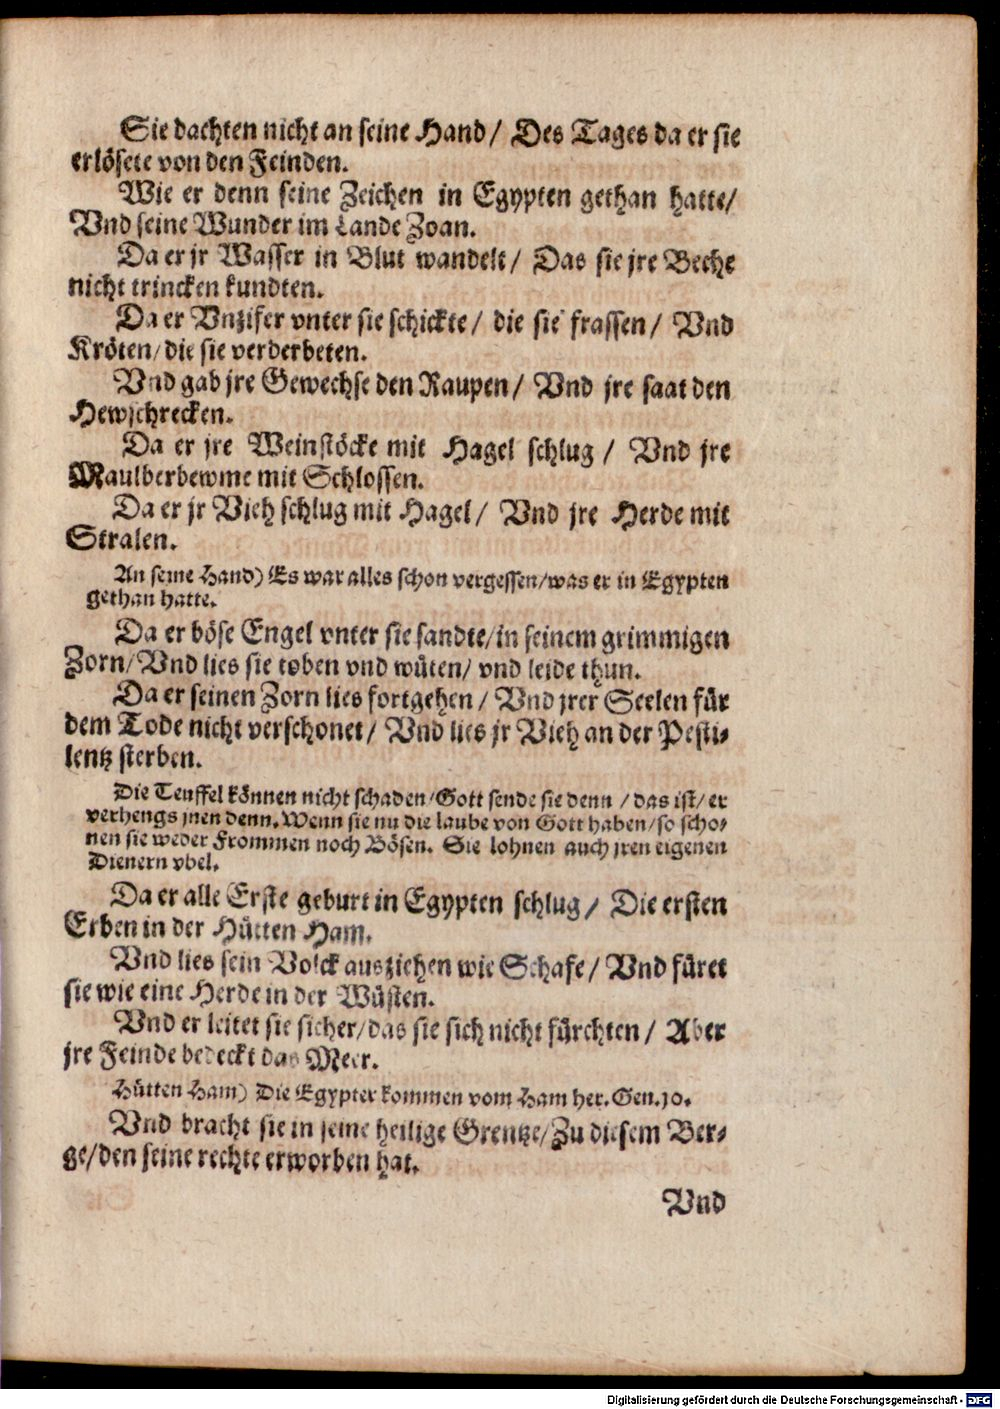 Sie dachten nicht an seine Hand/ Des Tages da er sie
erlösete von den Feinden.
Wie er denn seine Zeichen in Egypten gethan hatte/
Vnd seine Wunder im Lande Zoan.
Da er jr Wasser in Blut wandelt/ Das sie jre Beche
nicht trincken kundten.
Da er Vnzifer vnter sie schickte/ die sie frassen/ Vnd
Kröten/die sie verderbeten.
Vnd gab jre Gewechse den Raupen/ Vnd jre saat den
Hewschrecken.
Da er jre Weinstöcke mit Hagel schlug/ Vnd jre
Maulberbewme mit Schlossen.
Da er jr Vieh schlug mit Hagel/ Vnd jre Herde mit
Stralen.
An seine Hand) Es war alles schon vergessen/was er in Egypten
gethan hatte.
Da er böse Engel vnter sie sandte/in seinem grimmigen
Zorn/Vnd lies sie toben vnd wüten/ vnd leide thun.
Da er seinen Zorn lies fortgehen/ Vnd jrer Seelen für
dem Tode nicht verschonet/ Vnd lies jr Vieh an der Pesti-
lentz sterben.
Die Teuffel können nicht schaden/Gott sende sie denn/das ist/er
verhengs jnen denn. Wenn sie nu die laube von Gott haben/so scho-
nen sie weder Frommen noch Bösen. Sie lohnen auch jren eigenen
Dienern vbel.
Da er alle Erste geburt in Egypten schlug/ Die ersten
Erben in der Hütten Ham.
Vnd lies sein Volck ausziehen wie Schafe/ Vnd füret
sie wie eine Herde in der Wüsten.
Vnd er leitet sie sicher/das sie sich nicht fürchten/ Aber
jre Feinde bedeckt das Meer.
Hütten Ham) Die Egypter kommen vom Ham her. Gen.10.
Vnd bracht sie in seine heilige Grentze/Zu diesem Ber-
ge/den seine rechte erworben hat.
Vnd
Digitalisierung gefördert durch die Deutsche Forschungsgemeinschaft - DFG